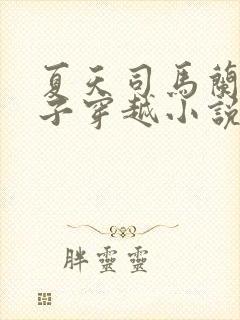 夏天司馬蘭
子穿越小說
胖靈靈